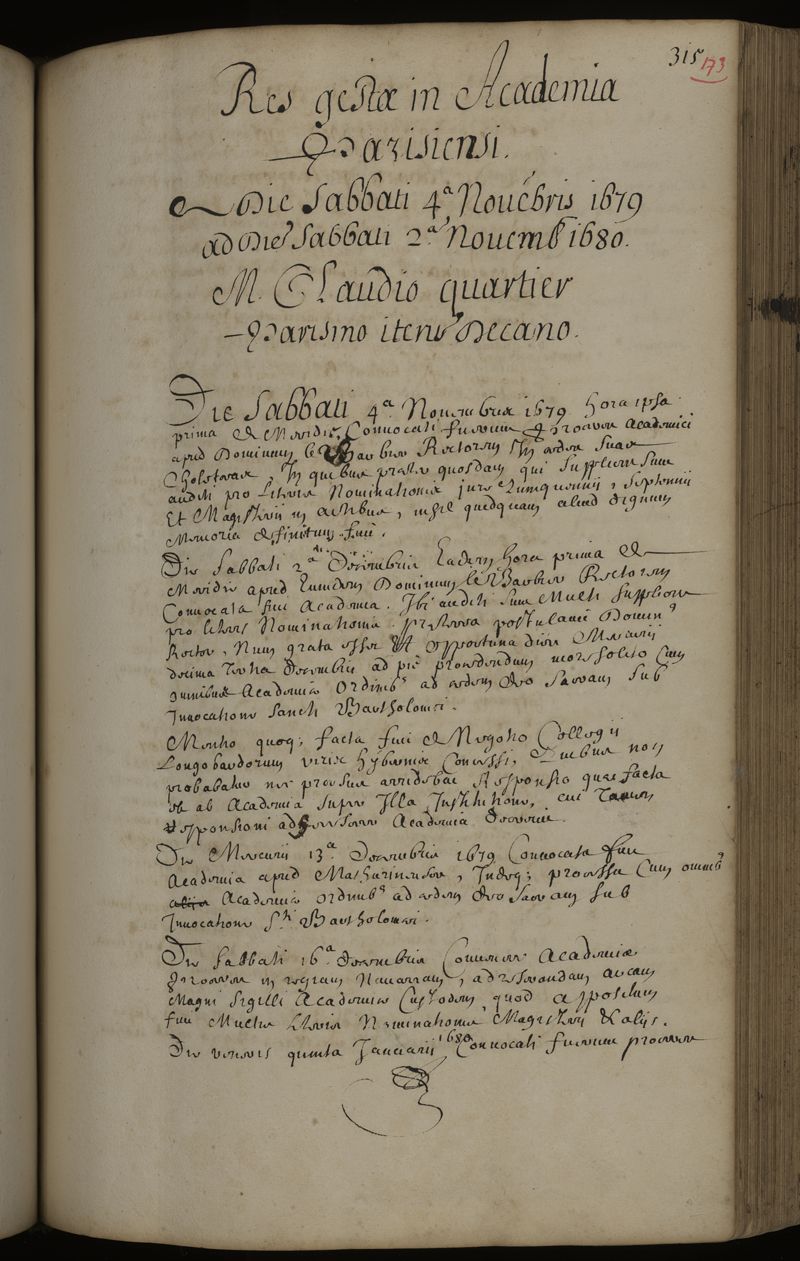 315 173
Res gestæ in Academia
Parisiensi.
Die Sabbati 4ª Nouẽbris 1679
ad Die Sabbati 2ª Nouemb 1680.
M. Claudio quartier
Parisino iteru Decano.
Die Sabbati 4ª Nouembris 1679 hora ipsa
prima a Meridie, Conuocati fuerunt Proceres Academici
apud Dominum Rectorem In ædes suas
In quibus præter quosdam qui supplices sunt
auditi pro literis Nominationis jure quinquennii, septennii
Et Magisterii in artibus, nihil quidquam aliud dignum
Memoria definitum fuit.
Die Sabbati 2ª Decembris Eadem hora prima a
Meridie apud Eundem Dominum Rectorem
Conuocata fuit Academia. Ibi auditi sunt Multi supplices
pro literis Nominationis. præterea postulauit Domin9
Rector, Num grata esset Et opportuna dies Mercurii
decima Tertia Decembris ad more solito Cum
omnibus Academiæ Ordinibs ad ædem Sacram sub
Inuocatione sancti Bartholomei.
Mentio quoq; facta fuit de Negotio Collegii
Longobardorum viris hybernis Concessi, Quibus non
probabatur nec prorsus arridebat Responsio quæ facta
est ab Academia super Illa Institutione, cui Tamen
Responsioni Academia decreuit.
Die Mercurii 13ª Decembris 1679 Conuocata fuit
Academia apud Mathurinenses, Indeq; processit Cum omnib9
Academiæ Ordinibs ad ædem Sacram sub
Inuocatione Sti Bartholomei.
Die Sabbati 16ª Decembris Conuenere Academiæ
Proceres in regiam Nauarram, ad reserandam arcam
Magni Sigilli Academiæ Custodem, quod appositum
fuit Multis literis Nominationis, Magisterii & aliis.
Die veneris quinta Januarii 1680 Conuocati fuerunt proceres